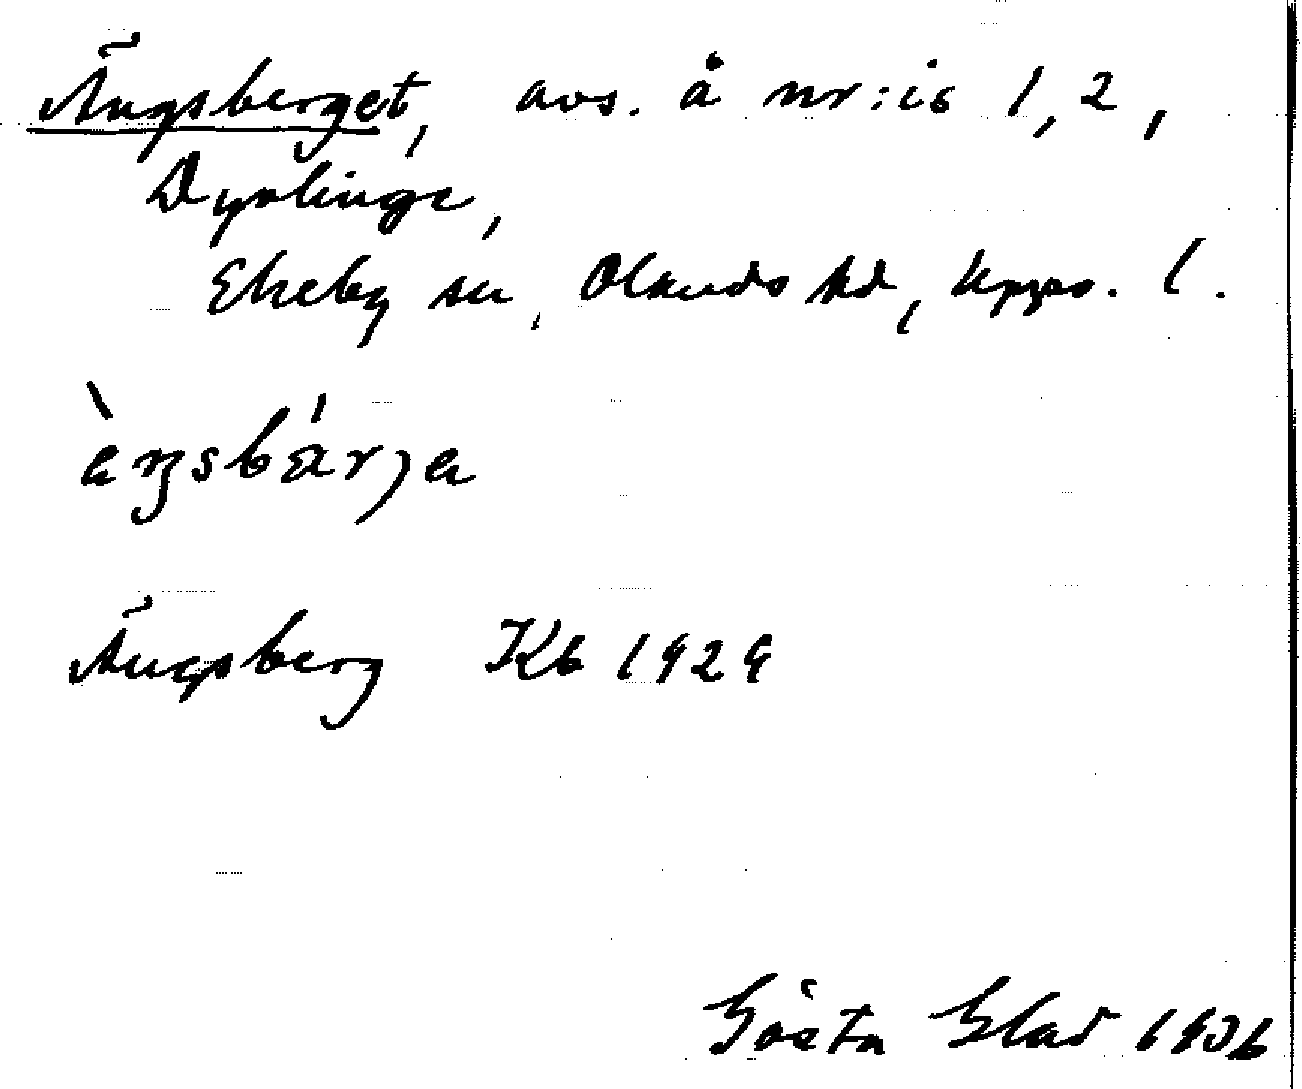 Ängsberget, avs. å nr:is 1, 2,
Dyvlinge,
Ekeby sn, Olands hd, Upps. l.
Ängsberg Kb 1929
Gösta Blad 1936